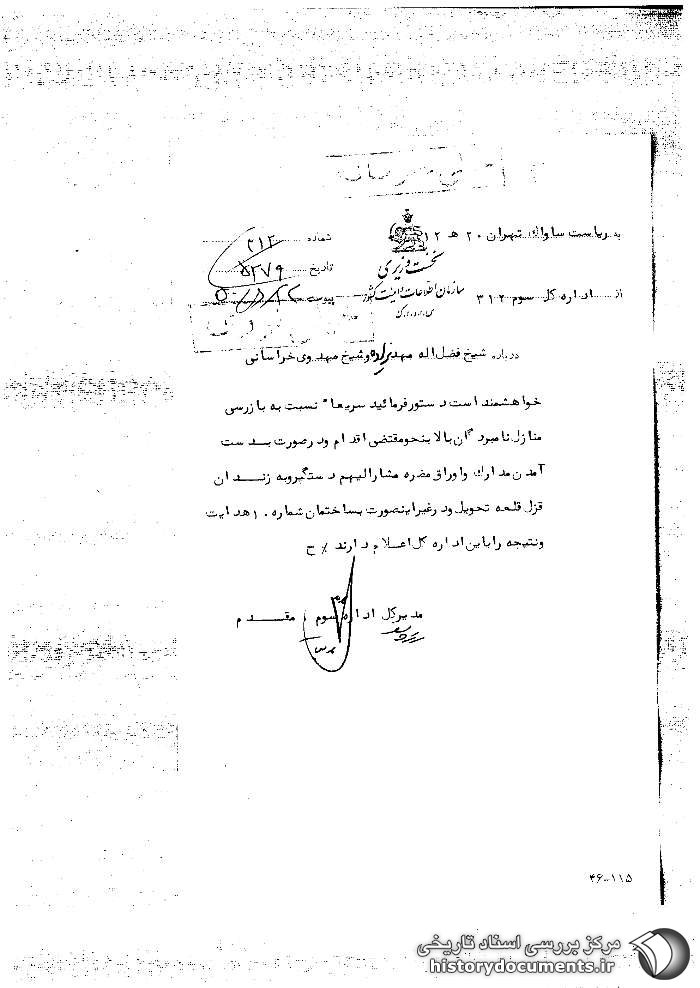 به ریاست ساواک تهران ۲۰ هـ ۱۲
شماره ۳۱۲
نخست وزیری
تاریخ ۵۲۷۹
سازمان اطلاعات و امنیت کشور
از اداره کل سوم ۳۱۲
پیوست
درباره شیخ فضل اله مهدیزاده و شیخ مهدوی خراسانی
خواهشمند است دستور فرمائید سریعاً نسبت به بازرسی
منازل نامبردگان بالا بنحو مقتضی اقدام و در صورت بدست
آمدن مدارک و اوراق مضره مشارالیهم دستگیر و به زندان
قزل قلعه تحویل و در غیر اینصورت بساختمان شماره ۱۰ هدایت
و نتیجه را باین اداره کل اعلام دارند ٪ ح
مدیر کل اداره سوم مقدم
۴۶-۱۱۵
مرکز بررسی اسناد تاریخی
historydocuments.ir